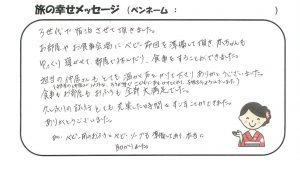 旅の幸せメッセージ（ペンネーム：　　　　　　　）
3世代で宿泊させて頂きました。
お部屋やお食事会場にベビー布団を準備して頂き、赤ちゃんも
ゆっくり寝かせて、部屋で休んだり、食事をすることができました。
担当の仲居さんもとても温かなおもてなしありがとうございました。
食事もお部屋もおふろも全部大満足でした。
久しぶりの旅行をとても充実した時間をすごすことができました。
ありがとうございました。
ベビー用のおふろのベビーソープも準備しており、本当に
助かりました。